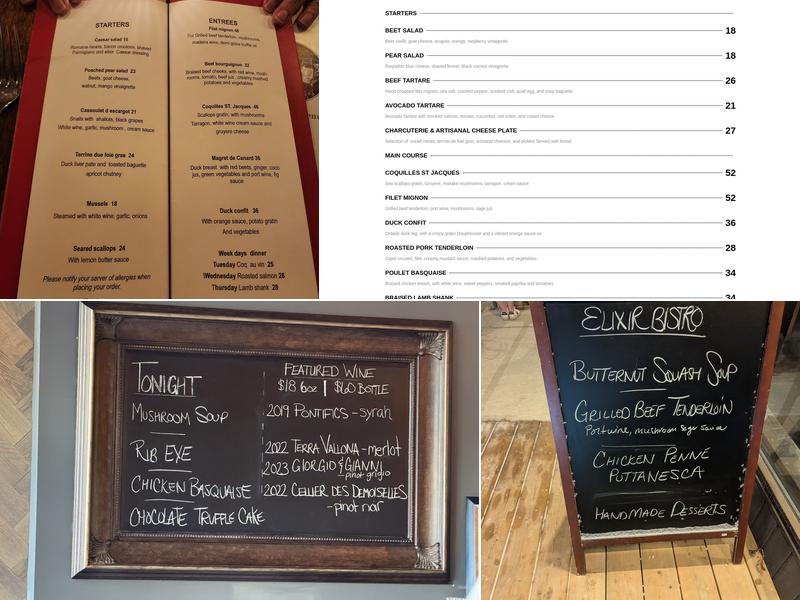 STARTERS
Caesar salad 15
Romaine hearts, bacon croutons, shaved
Parmigiano and elixir Caesar dressing
Poached pear salad 23
Beets, goat cheese,
walnut, mango vinaigrette
Cassoulet d escargot 21
Snails with shallots, black grapes
White wine, garlic, mushroom , cream sauce
Terrine due foie gras 24
Duck liver pate and toasted baguette
apricot chutney
Mussels 18
Steamed with white wine, garlic, onions
Seared scallops 24
With lemon butter sauce
Please notify your server of allergies when
placing your order.
ENTREES
Filet mignon 46
7oz Grilled beef tenderloin, mushrooms,
madeira wine, demi glaze truffle oil
Beef bourguignon 32
Braised beef cheeks, with red wine, mush-
rooms, tomato, beef jus , creamy mashed
potatoes and vegetables
Coquilles ST. Jacques 46
Scallops gratin, with mushrooms
Tarragon, white wine cream sauce and
gruyere cheese
Magret de Canard 36
Duck breast with red beets, ginger, coco
jus, green vegetables and port wine, fig
sauce
Duck confit 36
With orange sauce, potato gratin
And vegetables
Week days dinner
Tuesday Coq au vin 25
Wednesday Roasted salmon 28
Thursday Lamb shank 28
STARTERS
BEET SALAD 18
Beet confit, goat cheese, arugula, orange, raspberry vinaigrette
PEAR SALAD 18
Roquefort blue cheese, shaved fennel, black currant vinaigrette
BEEF TARTARE 26
Hand-chopped filet mignon, sea salt, cracked pepper, smoked chili, quail egg, and crisp baguette
AVOCADO TARTARE 21
Avocado Tartare with smoked salmon, tomato, cucumber, red onion, and cream cheese
CHARCUTERIE & ARTISANAL CHEESE PLATE 27
Selection of cured meats, terrine de foie gras, artisanal cheeses, and pickles Served with bread
MAIN COURSE
COQUILLES ST JACQUES 52
Sea scallops gratin, Gruyere, maitake mushrooms, tarragon, cream sauce
FILET MIGNON 52
Grilled beef tenderloin, port wine, mushrooms, sage jus
DUCK CONFIT 36
Ontario duck leg, with a crispy gratin Dauphinoise and a vibrant orange sauce or
ROASTED PORK TENDERLOIN 28
Cajun crusted, filet, creamy mustard sauce, mashed potatoes, and vegetables
POULET BASQUAISE 34
Braised chicken breast, with white wine, sweet peppers, smoked paprika and tomatoes
BRAISED LAMB SHANK 34
TONIGHT
MUSHROOM SOUP
RIB EYE
CHICKEN BASQUAISE
CHOCOLATE TRUFFLE CAKE
FEATURED WINE
$18 6oz | $60 BOTTLE
2019 PONTIFICS - syrah
2022 TERRA VALLONA - merlot
2023 GIORGIO & GIANNI
- pinot grigio
2022 CELLIER DES DEMOISELLES
- pinot noir
ELIXIR BISTRO
BUTTERNUT SQUASH SOUP
GRILLED BEEF TENDERLOIN
Port wine, mushroom sage sauce
CHICKEN PENNE
PUTTANESCA
HANDMADE DESSERTS